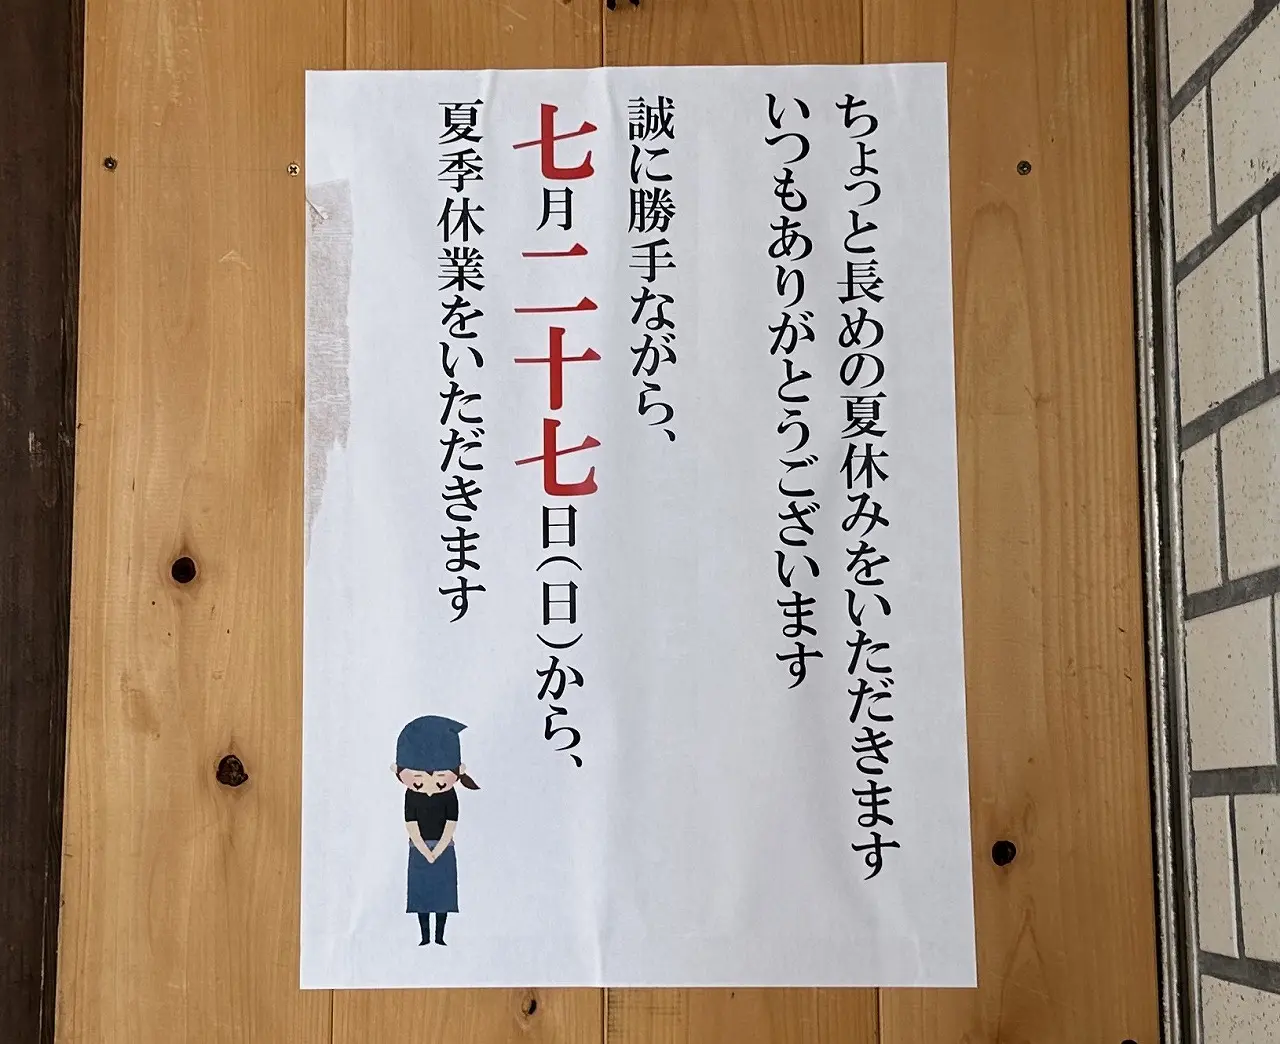 ちょっと長めの夏休みをいただきます
いつもありがとうございます
誠に勝手ながら、
七月二十七日(日)から、
夏季休業をいただきます